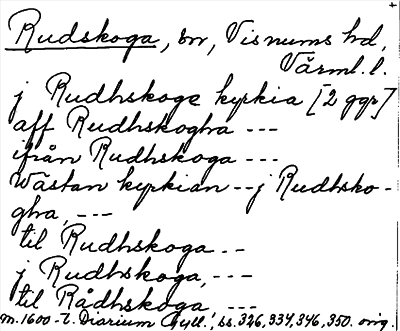 Rudskoga, sn, Visnums hd,
Värml. l.
j Rudhskoge kyrkia [2 ggr]
aff Rudhskogha ---
ifrån Rudhskoga ---
Wästan kyrkian -- j Rudhsko-
gha, ---
til Rudhskoga --
j Rudhskoga, ---
til Rådhskoga ---
m. 1600-t. Diarium Gyll., ss. 326, 334, 346, 350. orig.